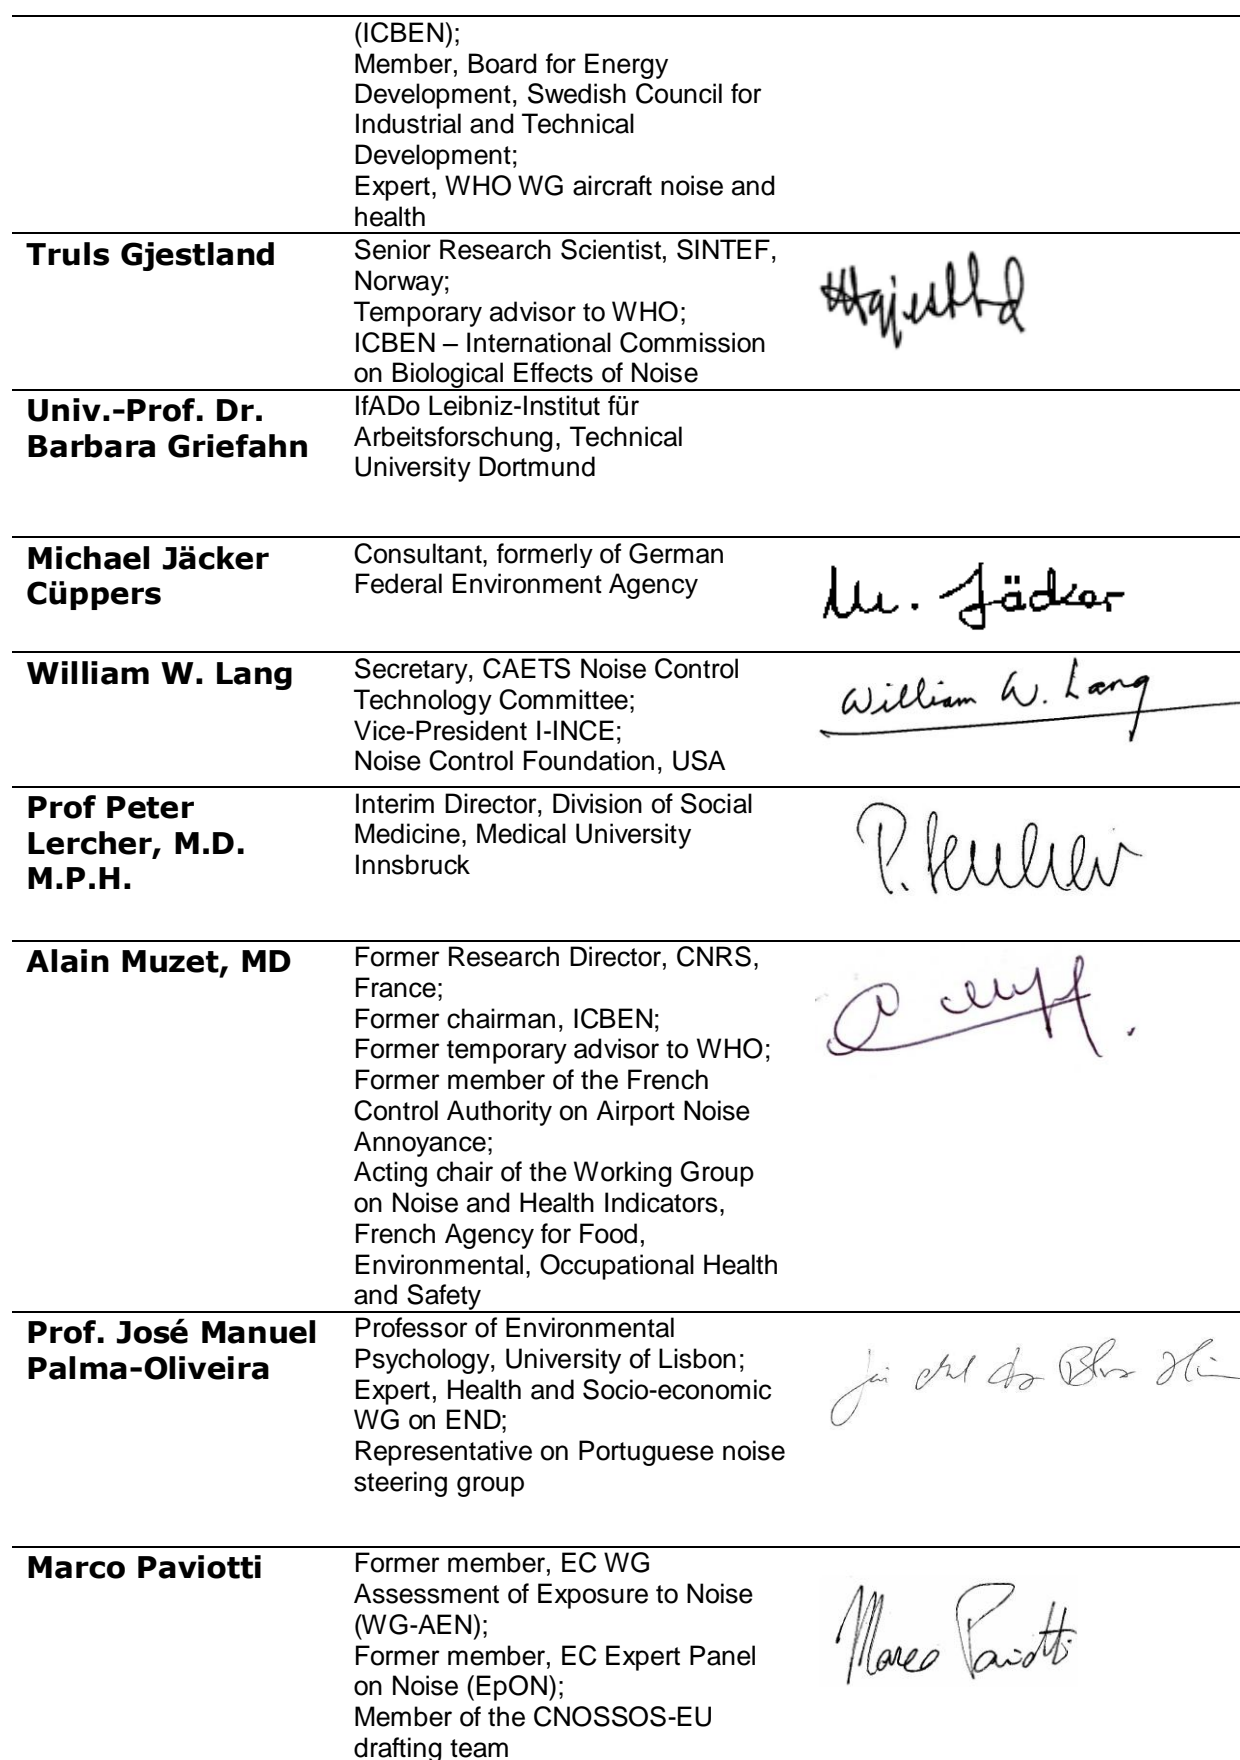 (ICBEN);
Member, Board for Energy
Development, Swedish Council for
Industrial and Technical
Development;
Expert, WHO WG aircraft noise and
health
Truls Gjestland
Senior Research Scientist, SINTEF,
Norway;
Temporary advisor to WHO;
ICBEN – International Commission
on Biological Effects of Noise
Univ.-Prof. Dr.
Barbara Griefahn
IfADo Leibniz-Institut für
Arbeitsforschung, Technical
University Dortmund
Michael Jäcker
Cüppers
Consultant, formerly of German
Federal Environment Agency
M. Jäcker
William W. Lang
Secretary, CAETS Noise Control
Technology Committee;
Vice-President I-INCE;
Noise Control Foundation, USA
William W. Lang
Prof Peter
Lercher, M.D.
M.P.H.
Interim Director, Division of Social
Medicine, Medical University
Innsbruck
P. Lercher
Alain Muzet, MD
Former Research Director, CNRS,
France;
Former chairman, ICBEN;
Former temporary advisor to WHO;
Former member of the French
Control Authority on Airport Noise
Annoyance;
Acting chair of the Working Group
on Noise and Health Indicators,
French Agency for Food,
Environmental, Occupational Health
and Safety
Prof. José Manuel
Palma-Oliveira
Professor of Environmental
Psychology, University of Lisbon;
Expert, Health and Socio-economic
WG on END;
Representative on Portuguese noise
steering group
Marco Paviotti
Former member, EC WG
Assessment of Exposure to Noise
(WG-AEN);
Former member, EC Expert Panel
on Noise (EpON);
Member of the CNOSSOS-EU
drafting team
Marco Paviotti